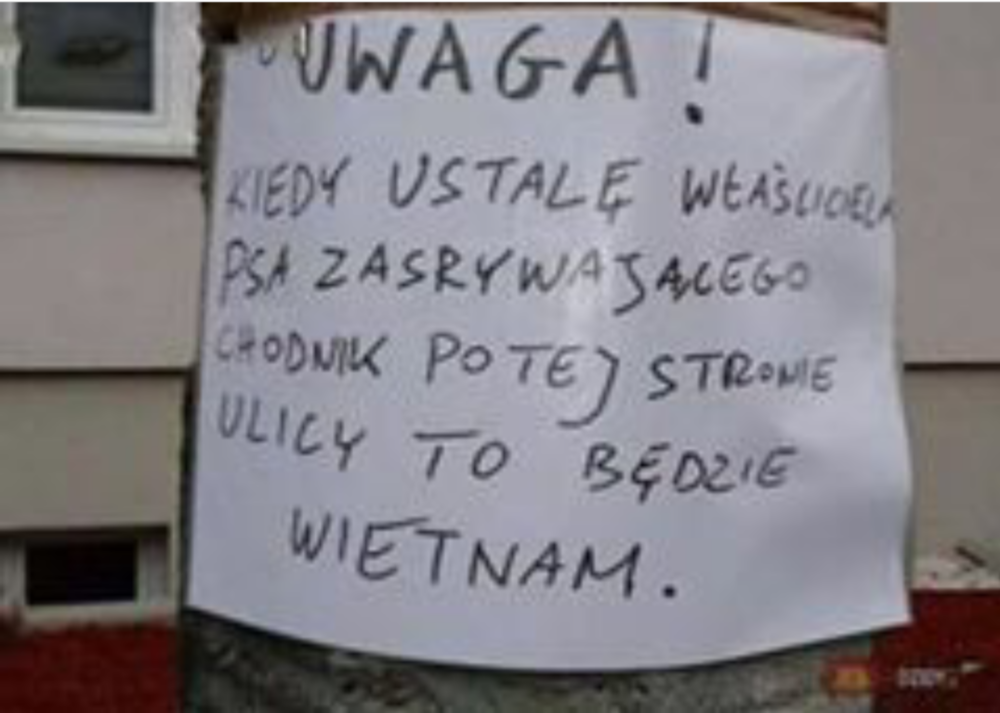 UWAGA!
KIEDY USTALĘ WŁAŚCICIELA
PSA ZASRYWAJĄCEGO
CHODNIK PO TEJ STRONIE
ULICY TO BĘDZIE
WIETNAM.